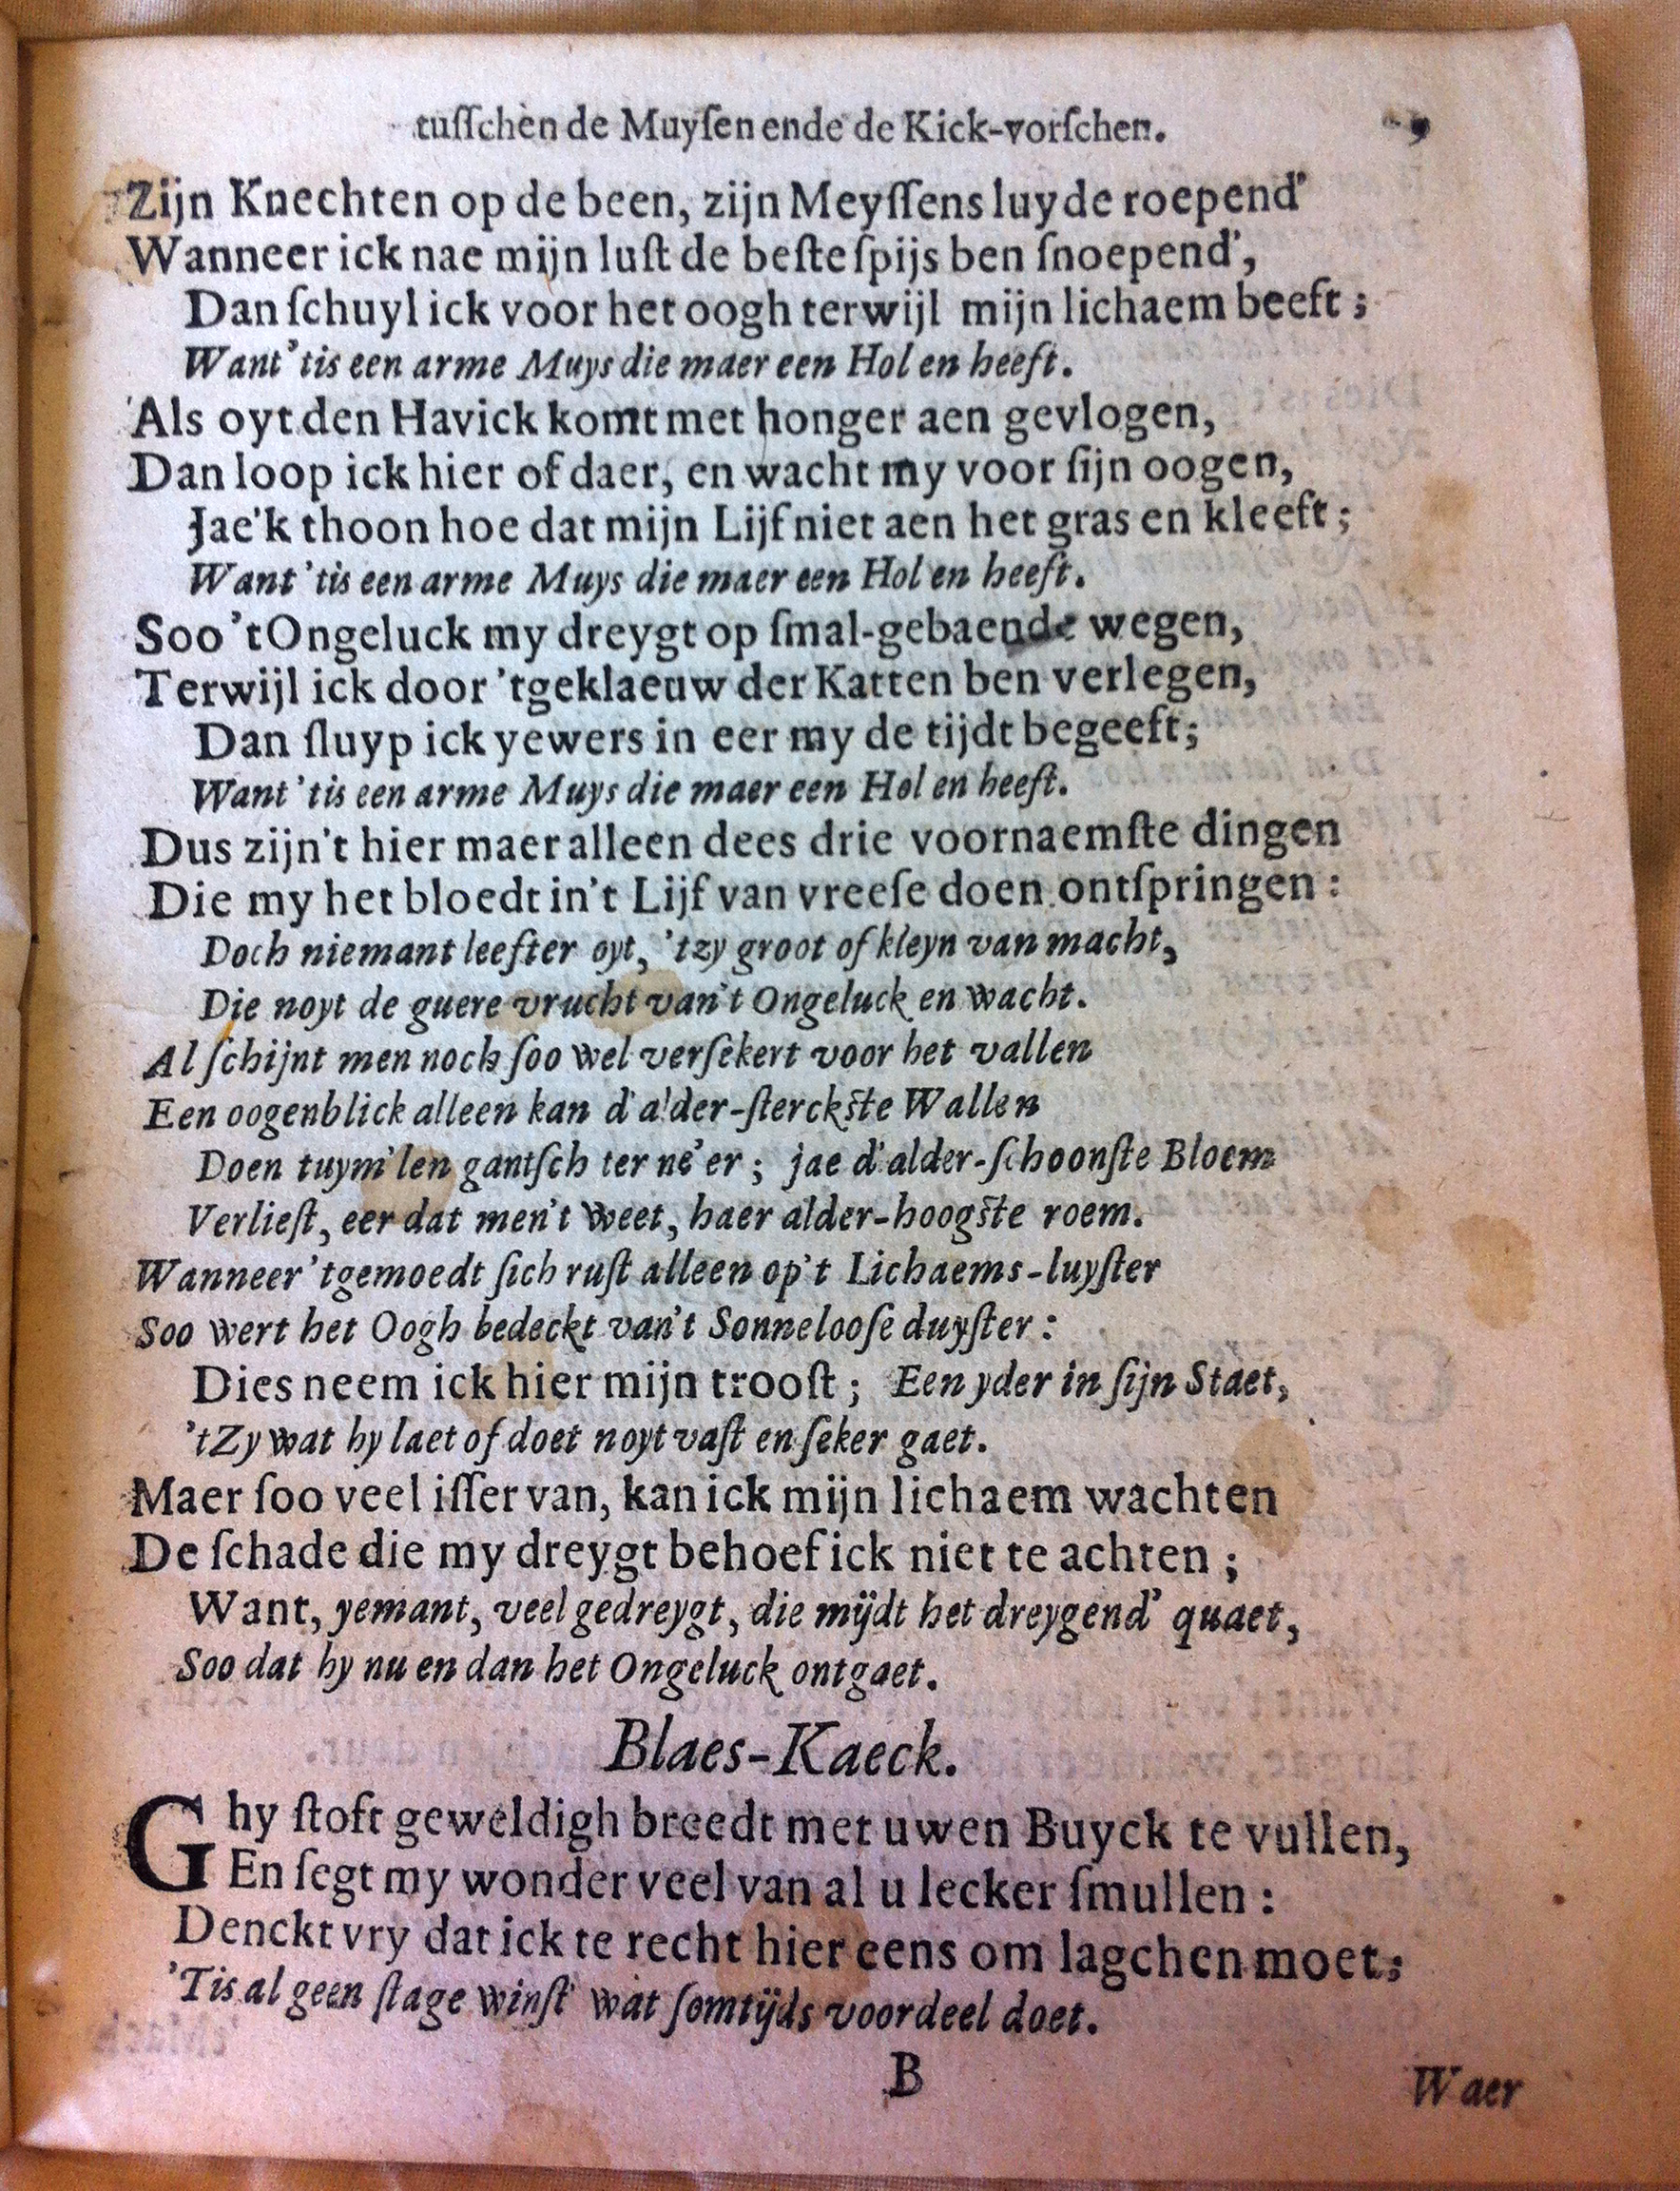 tuſſchen de Muyſen ende de Kick-vorſchen. 9
Zijn Knechten op de been, zijn Meyſſens luyde roepend'
Wanneer ick nae mijn luſt de beſte ſpijs ben ſnoepend',
Dan ſchuyl ick voor het oogh terwijl mijn lichaem beeft;
Want 'tis een arme Muys die maer een Hol en heeft.
Als oyt den Havick komt met honger aen gevlogen,
Dan loop ick hier of daer, en wacht my voor ſijn oogen,
Jae'k thoon hoe dat mijn Lijf niet aen het gras en kleeft;
Want 'tis een arme Muys die maer een Hol en heeft.
Soo 't Ongeluck my dreygt op ſmal-gebaende wegen,
Terwijl ick door 'tgeklaeuw der Katten ben verlegen,
Dan ſluyp ick yewers in eer my de tijdt begeeft;
Want 'tis een arme Muys die maer een Hol en heeft.
Dus zijn't hier maer alleen dees drie voornaemſte dingen
Die my het bloedt in't Lijf van vreeſe doen ontſpringen:
Doch niemant leefter oyt, 'tzy groot of kleyn van macht,
Die noyt de guere vrucht van't Ongeluck en wacht.
Al ſchijnt men noch ſoo wel verſekert voor het vallen
Een oogenblick alleen kan d'alder-ſterckſte Wallen
Doen tuym'len gantſch ter ne'er; jae d'alder-ſchoonſte Bloem
Verlieſt, eer dat men't weet, haer alder-hoogſte roem.
Wanneer 'tgemoedt ſich ruſt alleen op't Lichaems-luyſter
Soo wert het Oogh bedeckt van't Sonnelooſe duyſter:
Dies neem ick hier mijn trooſt; Een yder in ſijn Staet,
'tZy wat hy laet of doet noyt vaſt en ſeker gaet.
Maer ſoo veel iſſer van, kan ick mijn lichaem wachten
De ſchade die my dreygt behoef ick niet te achten;
Want, yemant, veel gedreygt, die mijdt het dreygend' quaet,
Soo dat hy nu en dan het Ongeluck ontgaet.
Blaes-Kaeck.
Ghy ſtoft geweldigh breedt met uwen Buyck te vullen,
En ſegt my wonder veel van al u lecker ſmullen:
Denckt vry dat ick te recht hier eens om lagchen moet;
'Tis al geen ſtage winſt wat ſomtijds voordeel doet.
B
Waer